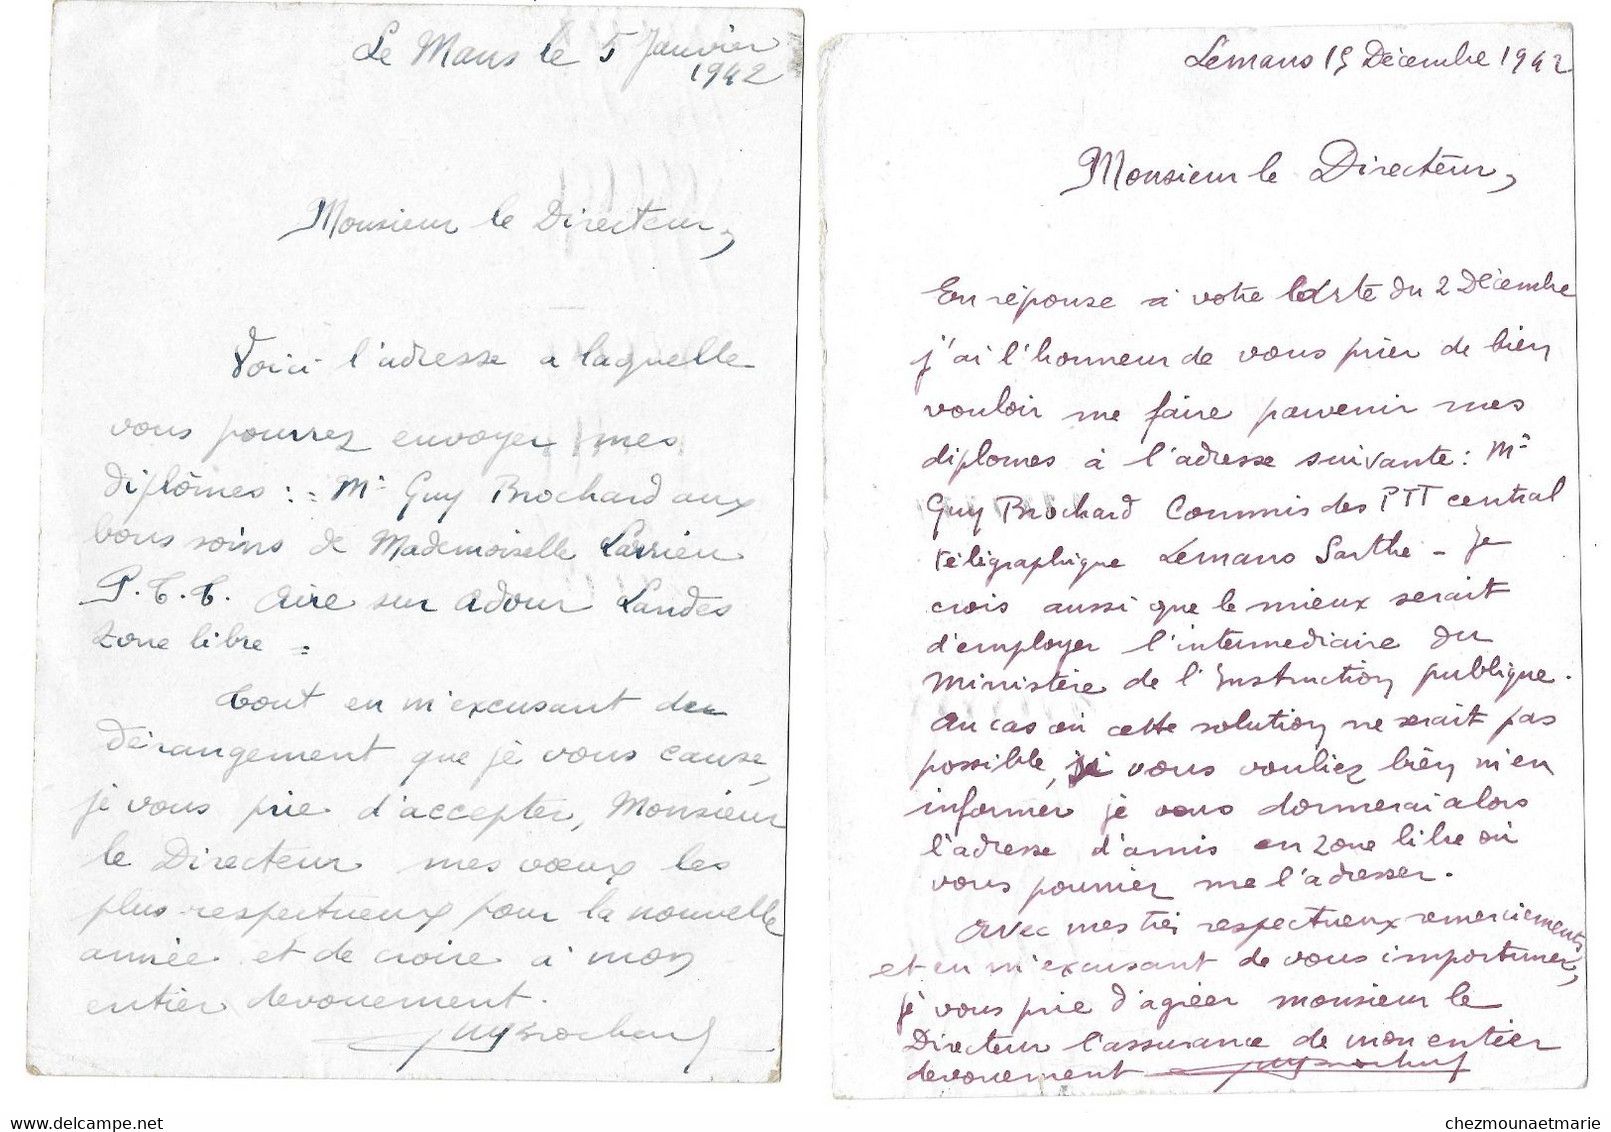 Le Mans le 5 Janvier
1942
Monsieur le Directeur,
Voici l'adresse a laquelle
vous pourrez envoyer mes
diplômes : = Mr Guy Brochard aux
bons soins de Mademoiselle Larrieu
P.T.T. Aire sur Adour Landes
Zone libre =
Tout en m'excusant du
dérangement que je vous cause,
je vous prie d'accepter, Monsieur
le Directeur mes vœux les
plus respectueux pour la nouvelle
année et de croire à mon
entier devouement.
Guy Brochard
Lemans 15 Décembre 1942
Monsieur le Directeur,
En réponse à votre carte du 2 Décembre
j'ai l'honneur de vous prier de bien
vouloir me faire parvenir mes
diplomes à l'adresse suivante : Mr
Guy Brochard Commis des PTT central
télégraphique Lemans Sarthe - Je
crois aussi que le mieux serait
d'employer l'intermediaire du
Ministère de l'Instruction publique.
Au cas où cette solution ne serait pas
possible, si vous vouliez bien m'en
informer je vous donnerai alors
l'adresse d'amis en Zone libre où
vous pourriez me l'adresser.
Avec mes très respectueux remerciements
et en m'excusant de vous importuner,
je vous prie d'agréer monsieur le
Directeur l'assurance de mon entier
devouement Guy Brochard
chezmounaetmarie